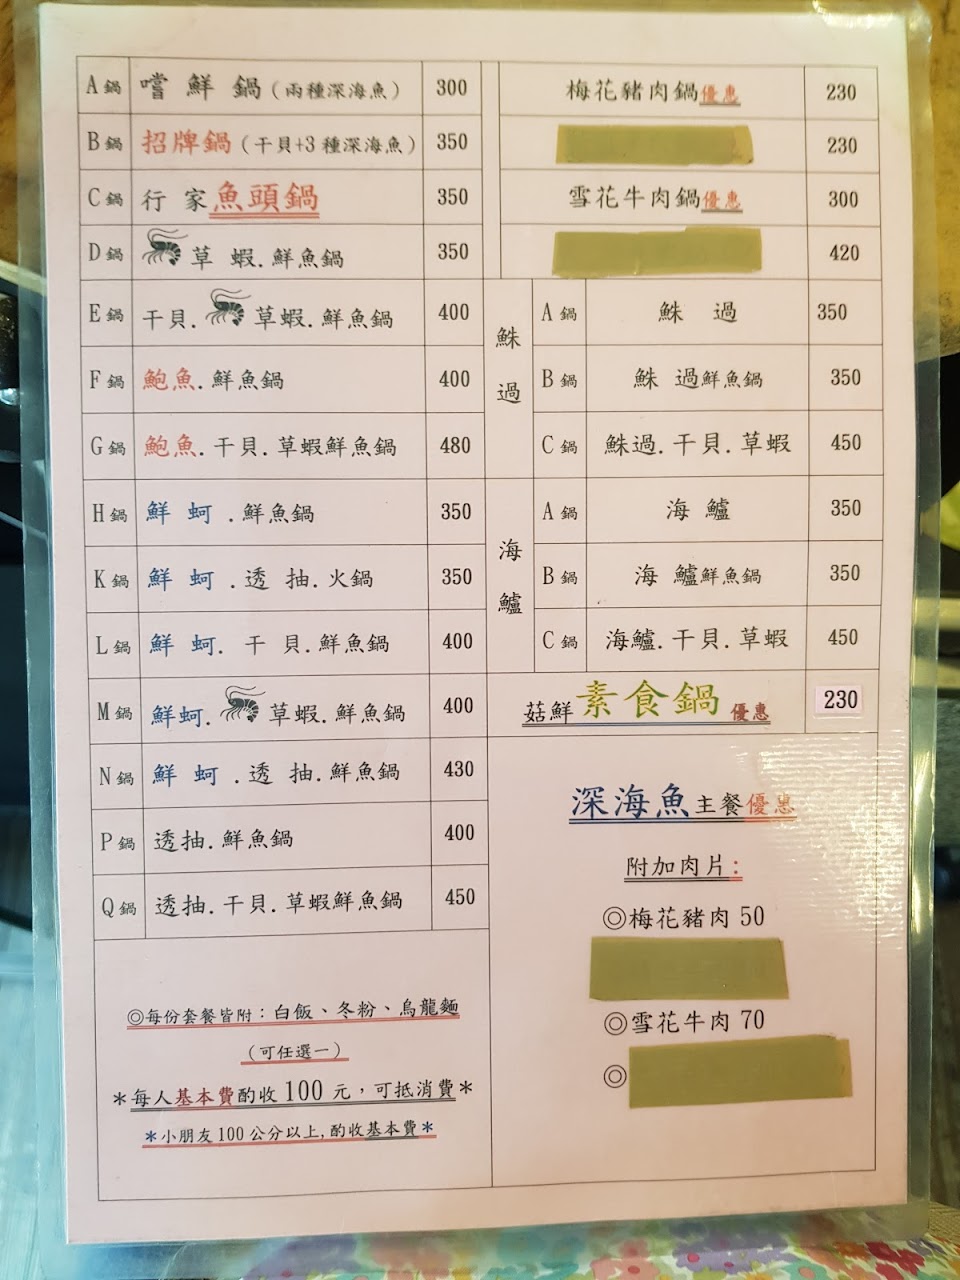 A鍋 嚐鮮鍋(兩種深海魚) 300
B鍋 招牌鍋(干貝+3種深海魚) 350
C鍋 行家魚頭鍋 350
D鍋 草蝦.鮮魚鍋 350
E鍋 干貝.草蝦.鮮魚鍋 400
F鍋 鮑魚.鮮魚鍋 400
G鍋 鮑魚.干貝.草蝦鮮魚鍋 480
H鍋 鮮蚵.鮮魚鍋 350
K鍋 鮮蚵.透抽.火鍋 350
L鍋 鮮蚵.干貝.鮮魚鍋 400
M鍋 鮮蚵.草蝦.鮮魚鍋 400
N鍋 鮮蚵.透抽.鮮魚鍋 430
P鍋 透抽.鮮魚鍋 400
Q鍋 透抽.干貝.草蝦鮮魚鍋 450
◎每份套餐皆附：白飯、冬粉、烏龍麵
(可任選一)
*每人基本費酌收100元，可抵消費*
*小朋友100公分以上,酌收基本費*
梅花豬肉鍋優惠 230
230
雪花牛肉鍋優惠 300
420
鮢過
A鍋 鮢過 350
B鍋 鮢過鮮魚鍋 350
C鍋 鮢過.干貝.草蝦 450
海鱸
A鍋 海鱸 350
B鍋 海鱸鮮魚鍋 350
C鍋 海鱸.干貝.草蝦 450
菇鮮素食鍋優惠 230
深海魚主餐優惠
附加肉片：
◎梅花豬肉50
◎雪花牛肉70
◎